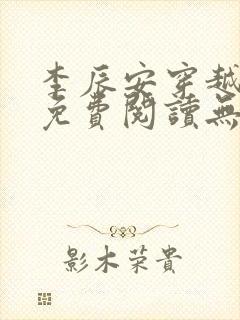 李辰安穿越
免費閱讀無
影木荣貴